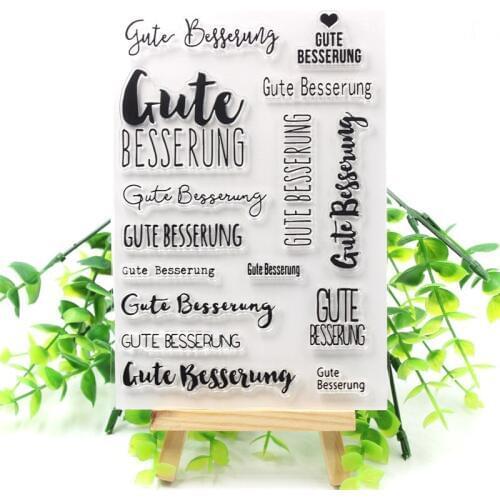 Gute Besserung
GUTE
BESSERUNG
Gute
BESSERUNG
Gute Besserung
GUTE BESSERUNG
Gute Besserung
Gute Besserung
GUTE BESSERUNG
Gute Besserung
Gute Besserung
Gute Besserung
Gute Besserung
GUTE
BESSERUNG
GUTE BESSERUNG
Gute Besserung
Gute
Besserung